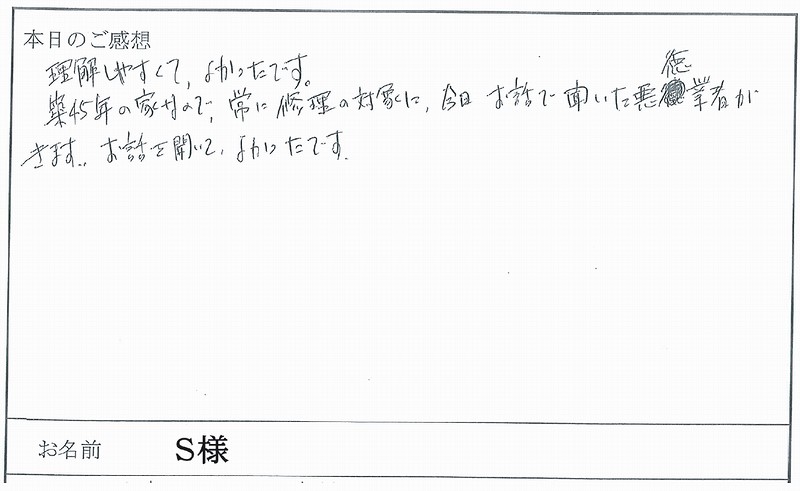 本日のご感想
理解しやすくて、よかったです。
築45年の家なので、常に修理の対象に、今日 お話で聞いた悪徳業者が
きます。お話を聞いて、よかったです。
お名前 S様